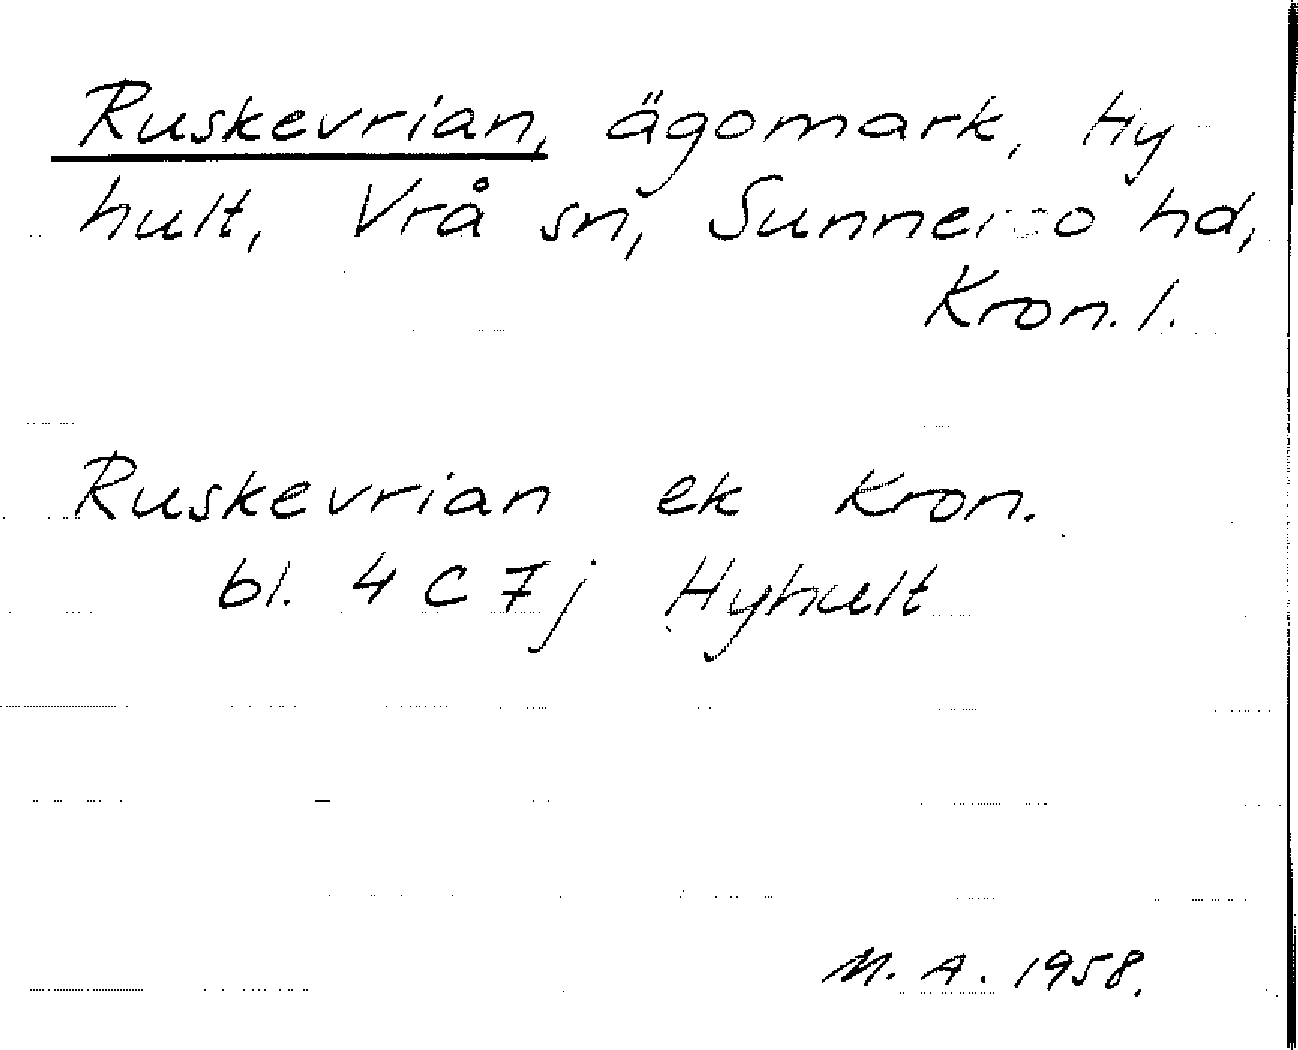 Ruskevrian, ägomark, Hy-
hult, Vrå sn, Sunnerbo hd,
Kron. l.
Ruskevrian ek Kron.
bl. 4 C 7 j Hyhult
M. A. 1958.